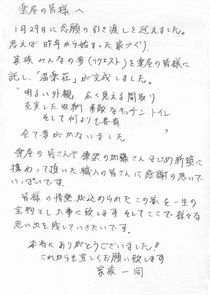 楽屋の皆様へ
1月29日に念願の引き渡しを迎えました。
思えば昨年から始まった家づくり
家族みんなの夢(リクエスト)を楽屋の皆様に
託し、「温楽荘」が完成しました。
明るい外観 広く見える間取り
充実した収納 素敵なキッチン トイレ
そして何よりも
全て夢がかないました
楽屋の皆さんや 加藤さんをはじめ新築に
携わって頂いた職人の皆さんに感謝の思いで
いっぱいです。
皆様の情熱が込められたこの家を一生の
宝物として大事に致します そしてここで様々な
思い出を残していきたいです。
本当にありがとうございました!!
これからも宜しくお願い致します
家族一同